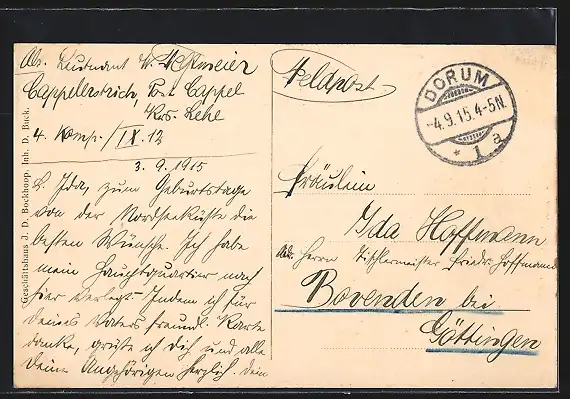 Abs. Leutnant W. Westmeier
Cappelerstrich, Post Cappel
Krs. Lehe
4. Komp./IX. 12
3. 9. 1915
L. Ida, zum Geburtstage
von der Nordseeküste die
besten Wünsche. Ich habe
mein Hauptquartier nach
hier verlegt. Indem ich für
Deines Vaters freundl. Karte
danke, grüße ich Dich und alle
Deine Angehörigen herzlich. Dein
Geschäftshaus J. D. Bockhoop. Inh. D. Buck.
Feldpost
DORUM
-4.9.15.4-5N.
* 1 a
Fräulein
Ida Hoffmann
Adr. Herrn Tischlermeister Friedr. Hoffmann
Bovenden bei
Göttingen